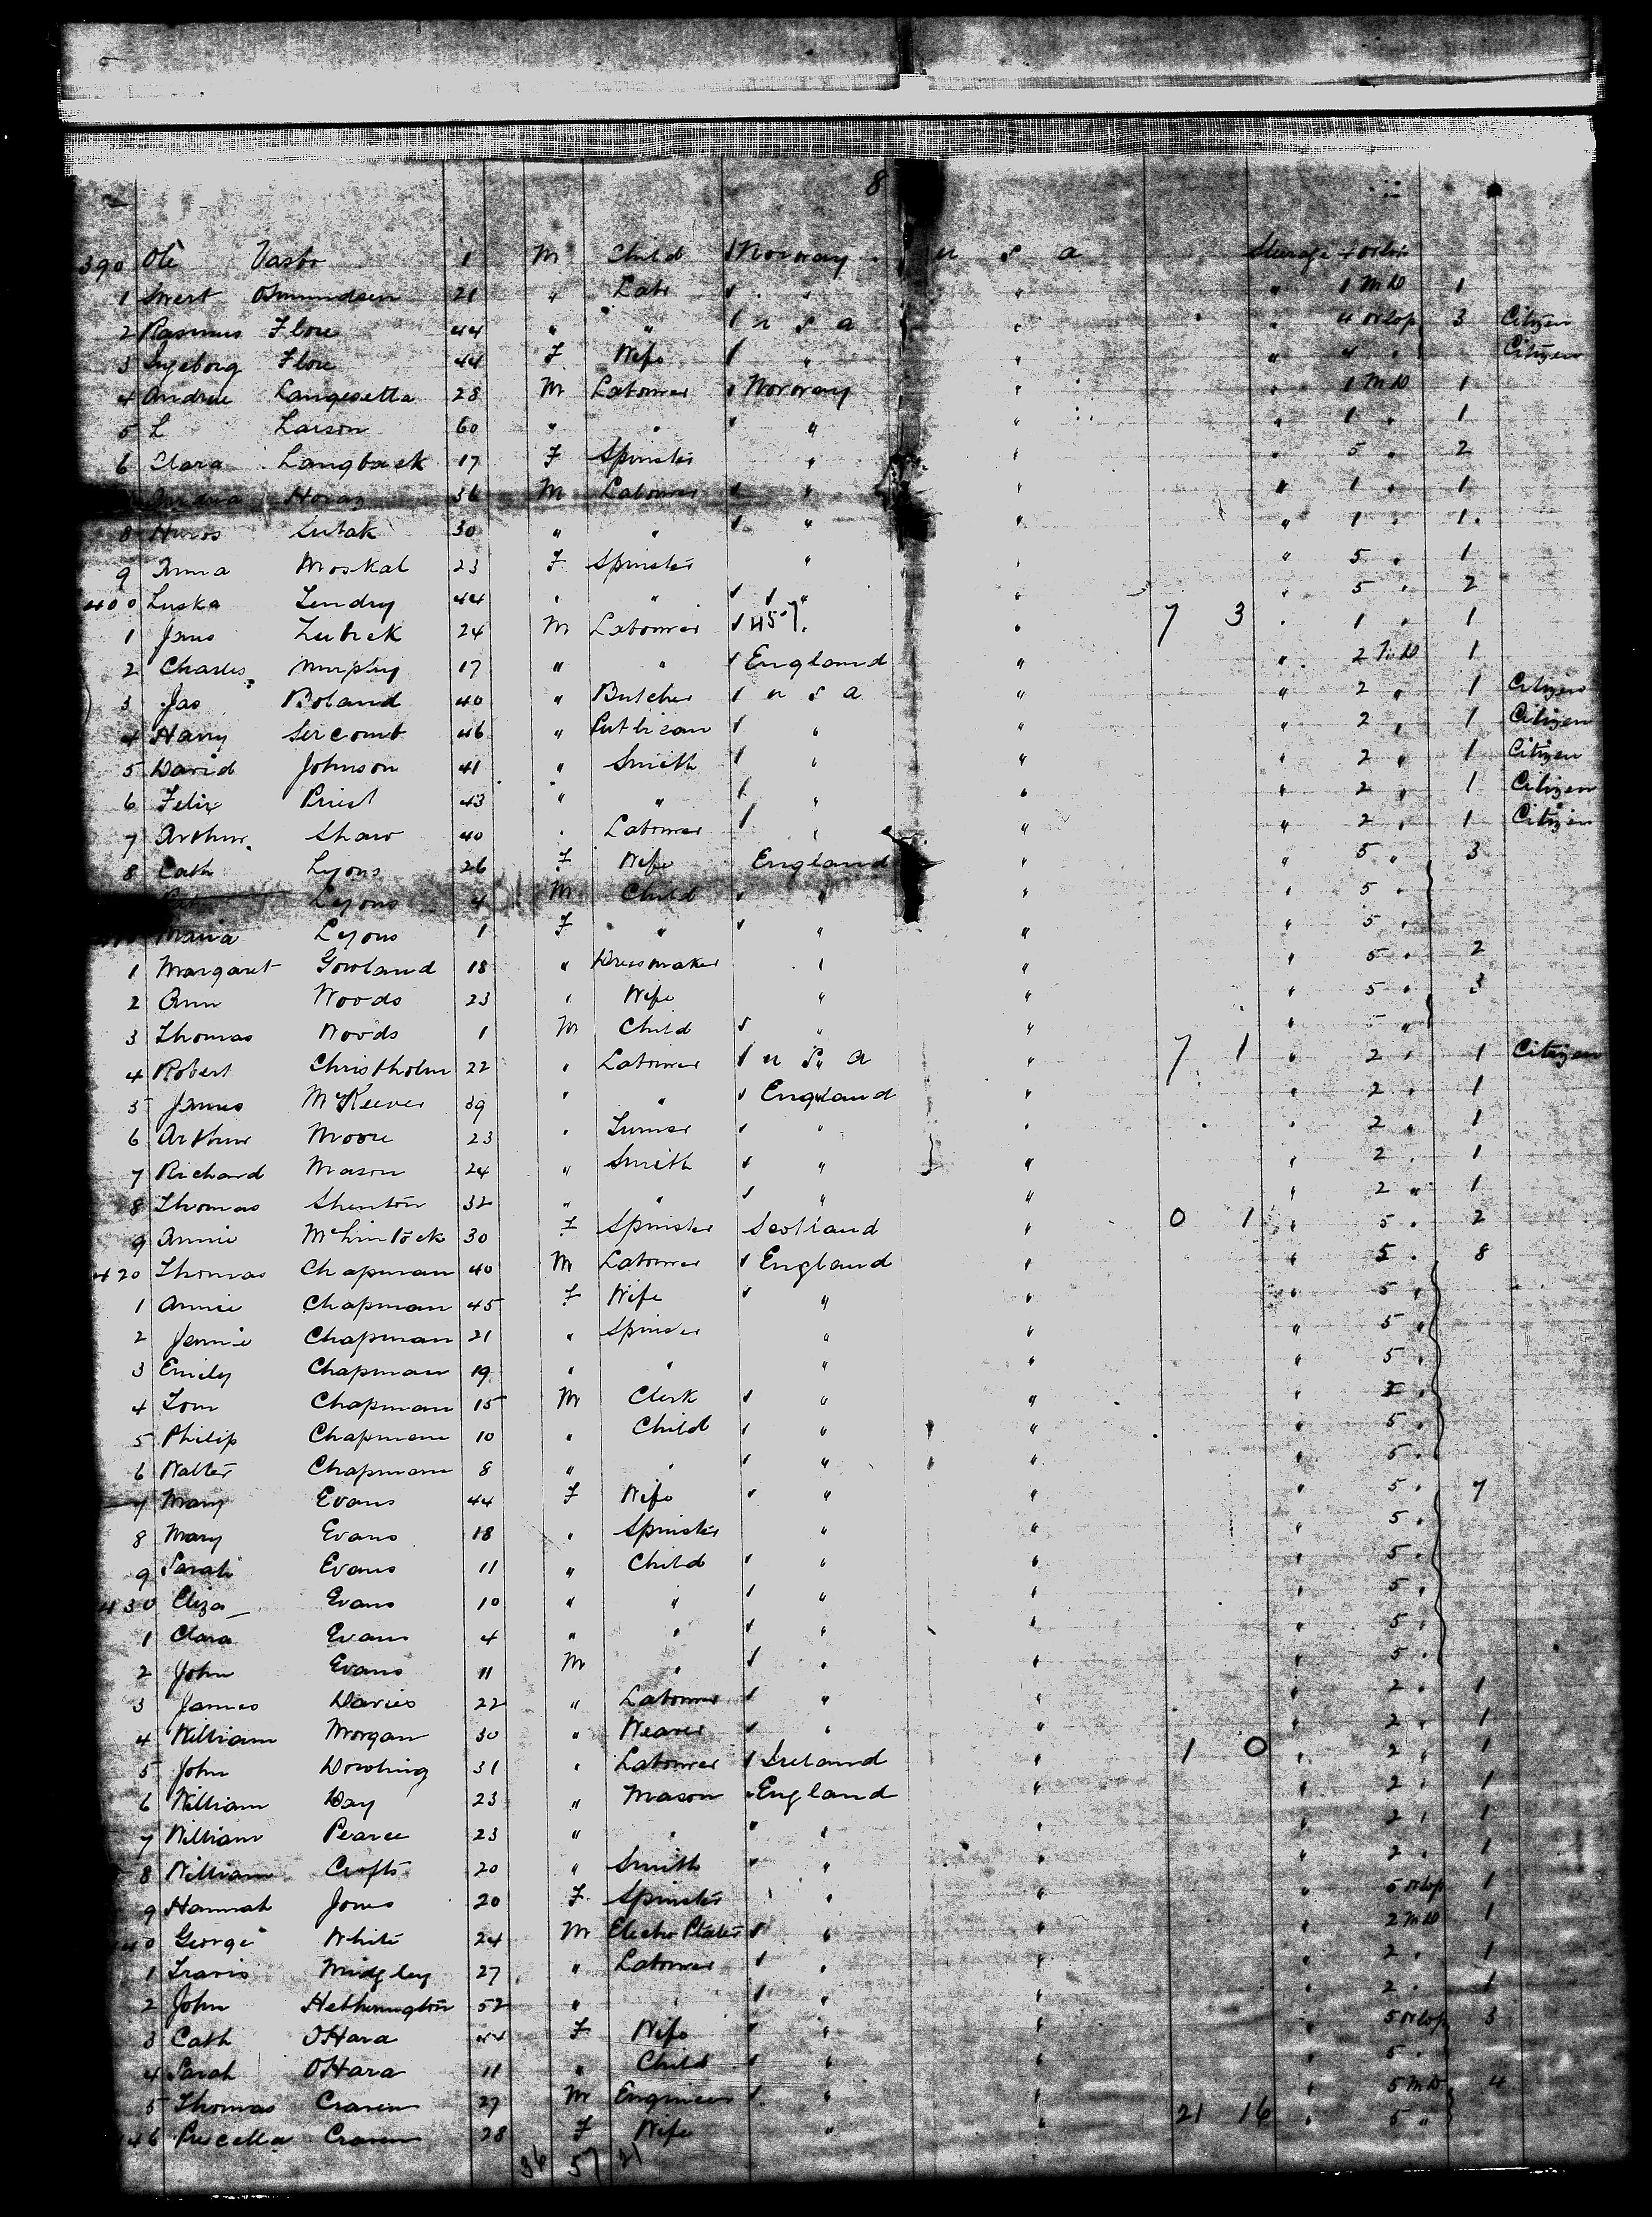 8
390 Ole Vasbo 1 M Child Norway u s a Steerage
1 Smert Osmundsen 21 " Labr " " " 1 M D 1
2 Rasmus Flore 44 " " u s a " " 4 orlop 3 Citizen
3 Ingeborg Flore 44 F Wife " " " 4 " Citizen
4 Andrew Langesetta 28 M Labourer Norway " " 1 M D 1
5 L Larson 60 " " " " " 1 " 1
6 Clara Langback 17 F Spinster " " " 5 " 2
Horaz 36 M Labourer " " " 1 " 1
8 Lutak 30 " " " " " 1 " 1
9 Anna Moskal 23 F Spinster " " " 5 " 1
400 Luska Lendry 44 " " " " " 5 " 2
1 Jans Zubrek 24 M Labourer " " 7 3 " 1 " 1
2 Charles Murphy 17 " " England " " 2 1
3 Jas Boland 40 " Butcher u s a " " 2 " 1 Citizen
4 Harry Sercomb 46 " Publican " " " 2 " 1 Citizen
5 David Johnson 41 " Smith " " " 2 " 1 Citizen
6 Felix Priest 43 " " " " " 2 " 1 Citizen
7 Arthur Shaw 40 " Labourer " " " 2 " 1 Citizen
8 Cath Lyons 26 F Wife England " " 5 " 3
Lyons 4 M Child " " " 5 "
Maria Lyons 1 F " " " " 5 "
1 Margaret Gowland 18 " Dressmaker " " " 5 " 2
2 Ann Woods 23 " Wife " " " 5 " 3
3 Thomas Woods 1 M Child " " " 5 "
4 Robert Christholm 22 " Labourer u s a " 7 1 " 2 " 1 Citizen
5 James McKeever 39 " " England " " 2 " 1
6 Arthur Moore 23 " Turner " " " 2 " 1
7 Richard Mason 24 " Smith " " " 2 " 1
8 Thomas Shenton 32 " " " " " 2 " 1
9 Annie McLintock 30 F Spinster Scotland " 0 1 " 5 " 2
420 Thomas Chapman 40 M Labourer England " " 5 " 8
1 Annie Chapman 45 F Wife " " " 5 "
2 Jennie Chapman 21 " Spinster " " " 5 "
3 Emily Chapman 19 " " " " " 5 "
4 Tom Chapman 15 M Clerk " " "
5 Philip Chapman 10 " Child " " " 5 "
6 Walter Chapman 8 " " " " " 5 "
7 Mary Evans 44 F Wife " " " 5 " 7
8 Mary Evans 18 " Spinster " " " 5 "
9 Sarah Evans 11 " Child " " " 5 "
430 Eliza Evans 10 " " " " " 5 "
1 Clara Evans 4 " " " " " 5 "
2 John Evans 11 M " " " " 5 "
3 James Davies 22 " Labourer " " " 2 " 1
4 William Morgan 30 " Weaver " " " 2 " 1
5 John Dowling 31 " Labourer Ireland " 1 0 " 2 " 1
6 William Day 23 " Mason England " " 2 " 1
7 William Pearce 23 " " " " " 2 " 1
8 William Crofts 20 " Smith " " " 2 " 1
9 Hannah Jones 20 F Spinster " " " 5 orlop 1
440 George White 24 M Electro Plater " " " 2 M D 1
1 Travis Midgley 27 " Labourer " " " 2 " 1
2 John Hetherington 52 " " " " " 2 " 1
3 Cath OHara 44 F Wife " " " 5 orlop 3
4 Sarah OHara 11 " Child " " " 5 "
5 Thomas Craven 27 M Engineer " " " 5 M D 4
446 Priscella Craven 28 F Wife " " 21 16 " 5 "
36 57 21